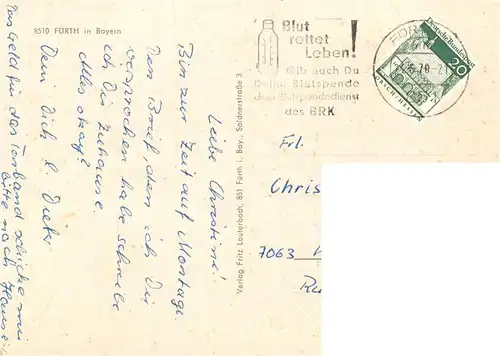 8510 FÜRTH in Bayern
Liebe Christine!
Bin zur Zeit auf Montage.
Den Brief, den ich Dir
versprochen habe schreibe
ich Dir Zuhause.
Alles okay?
Dein Dich l. Dieter
Das Geld für das Tonband schicke mir
bitte nach Hause.
Verlag Fritz Lauterbach, 851 Fürth i. Bay., Soldnerstraße 3
Blut
rettet
Leben!
Gib auch Du
Deine Blutspende
dem Blutspendedienst
des BRK
Deutsche Bundespost
20
Frl.
Chris
7063